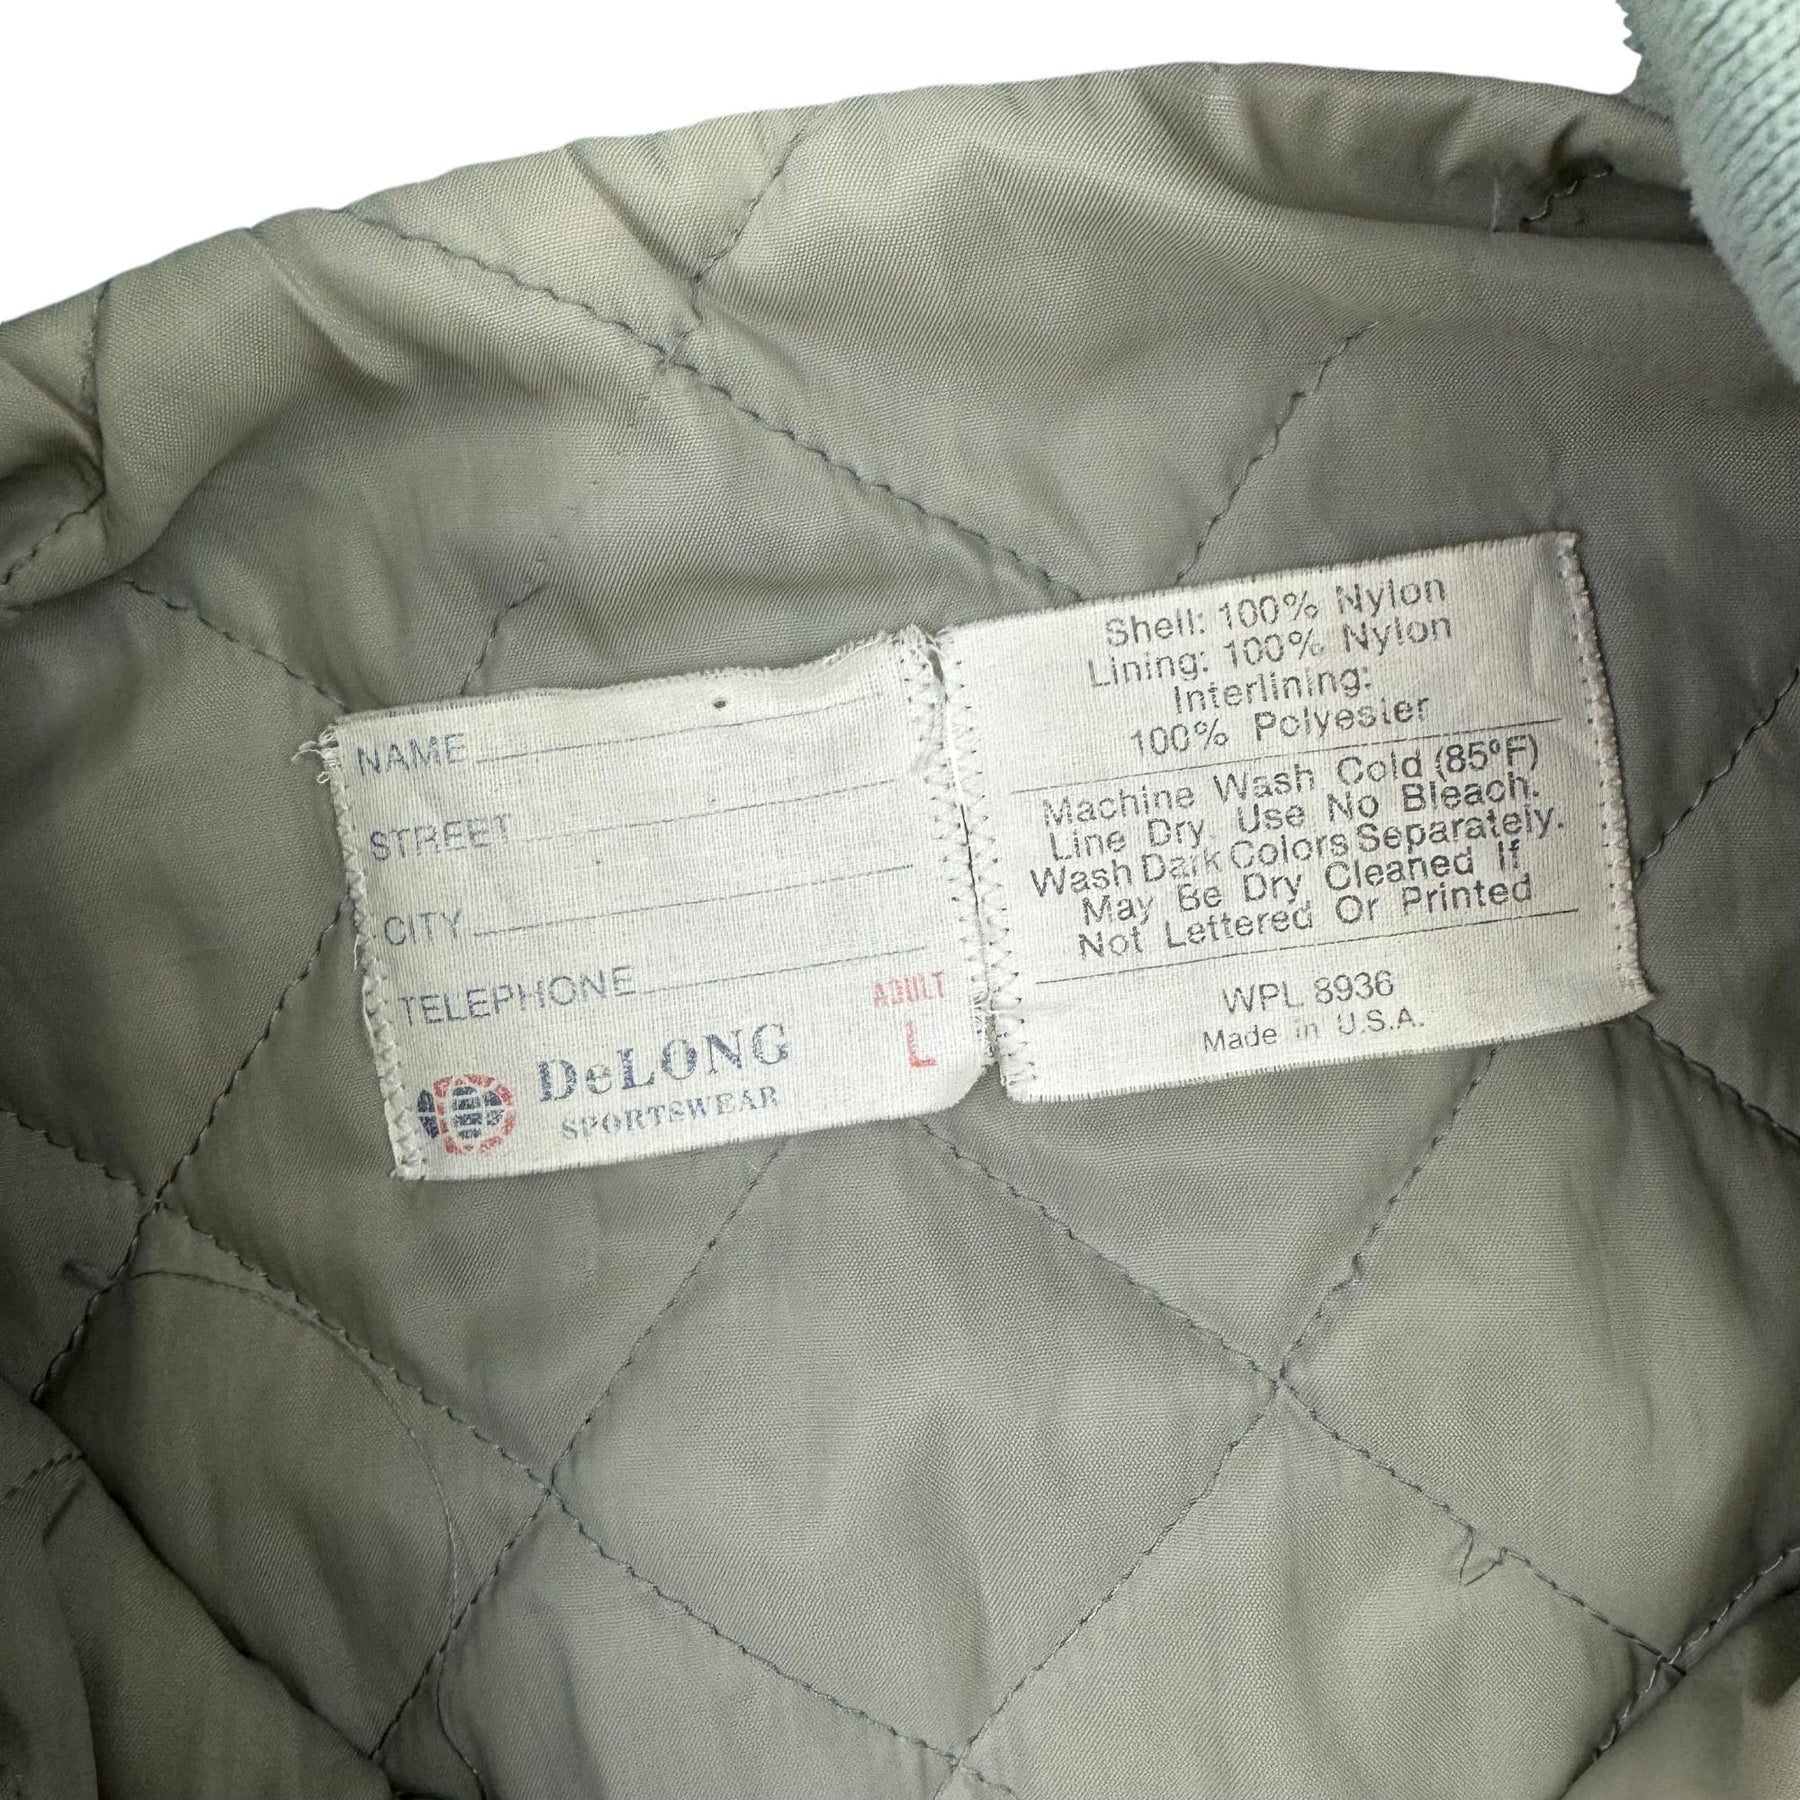 NAME
STREET
CITY
TELEPHONE
ADULT
L
DeLONG
SPORTSWEAR
Shell: 100% Nylon
Lining: 100% Nylon
Interlining:
100% Polyester
Machine Wash Cold (85°F)
Line Dry. Use No Bleach.
Wash Dark Colors Separately.
May Be Dry Cleaned If
Not Lettered Or Printed
WPL 8936
Made in U.S.A.